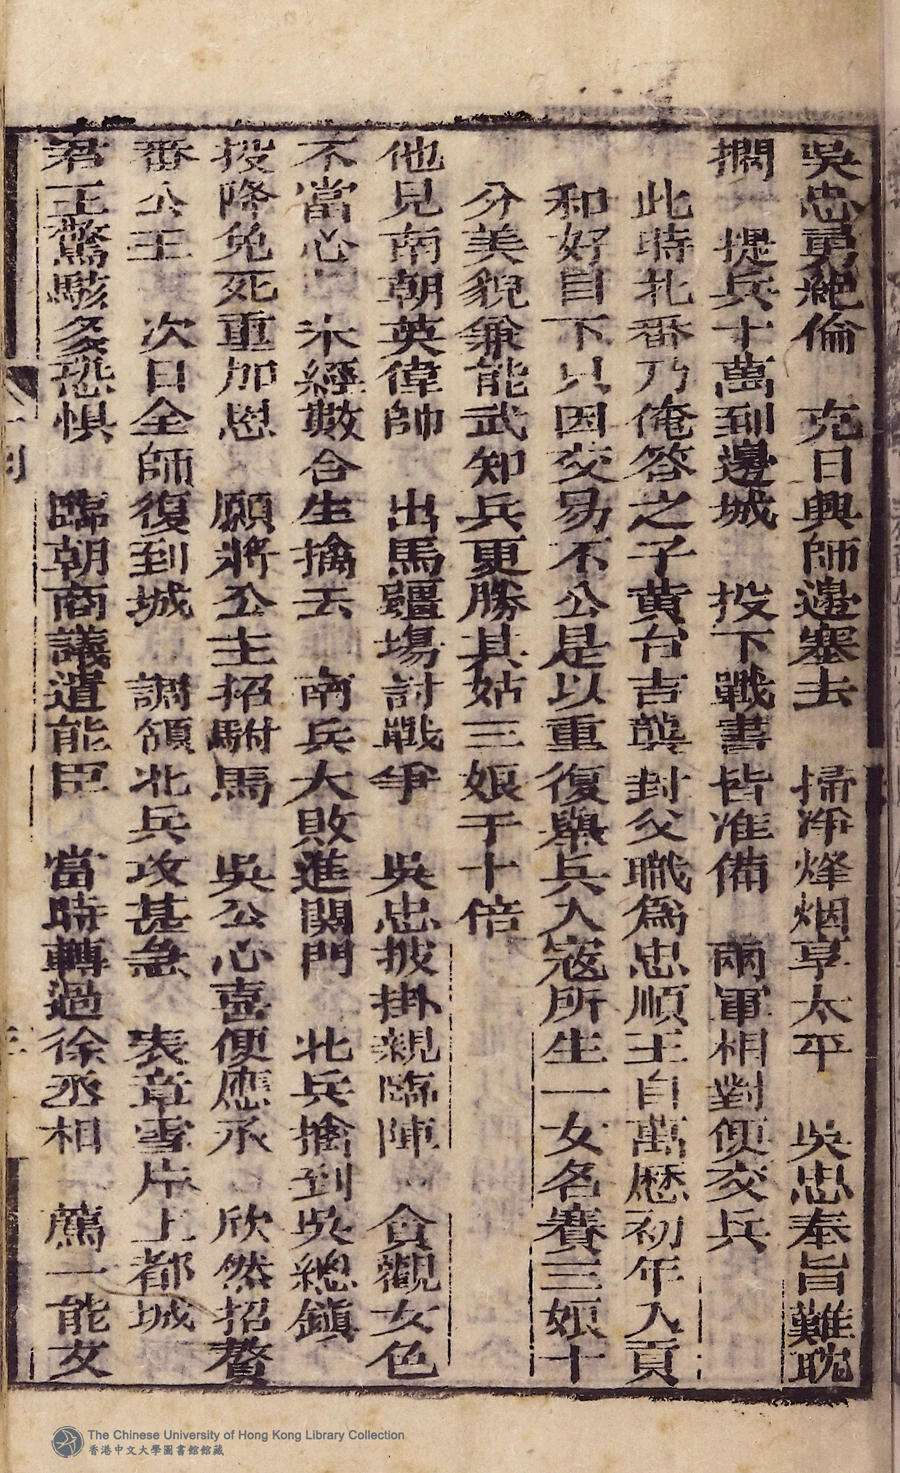 吳忠勇絕倫　克日興師邊塞去　掃淨烽烟享太平　吳忠奉旨難耽
擱　提兵十萬到邊城　投下戰書皆准備　兩軍相對便交兵
此時北番乃俺答之子黃台吉襲封父職爲忠順王自萬歷初年入貢
和好目下只因交易不公是以重復舉兵入寇所生一女名賽三娘十
分美貌兼能武知兵更勝其姑三娘子十倍
他見南朝英偉帥　出馬疆塲討戰爭　吳忠披掛親臨陣　貪觀女色
不當心　未經數合生擒去　南兵大敗進関門　北兵擒到吳總鎮
投降免死重加恩　願將公主招駙馬　吳公心喜便應承　欣然招贅
番公主　次日全師復到城　調領北兵攻甚急　表章雪片上都城
君王驚駭多恐惧　臨朝商議遣能臣　當時轉過徐丞相　薦一能女
The Chinese University of Hong Kong Library Collection
香港中文大學圖書館館藏